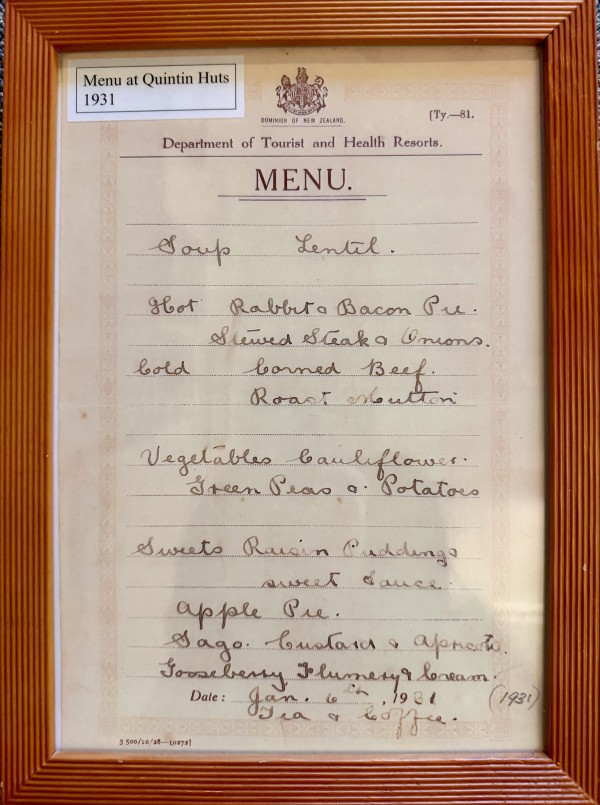 Menu at Quintin Huts
1931
DOMINION OF NEW ZEALAND.
[Ty.—81.
Department of Tourist and Health Resorts.
MENU.
Soup Lentil.
Hot Rabbit & Bacon Pie.
Stewed Steak & Onions.
Cold Corned Beef.
Roast Mutton
Vegetables Cauliflower.
Green Peas & Potatoes
Sweets Raisin Puddings
sweet Sauce.
Apple Pie.
Sago. Custard & Apricots.
Gooseberry Flumery & Cream.
Date: Jan. 6th, 1931 (1931)
Tea & Coffee.
3 500/10/28—10272]